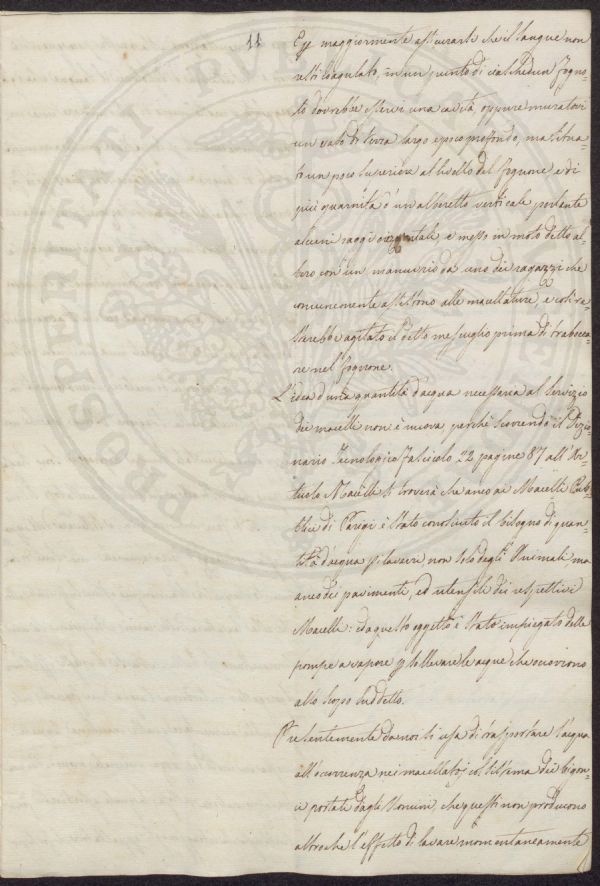 11
E p maggiormente assicurarsi che il sangue non
resti coagulato, in un punto di ciaschedun fogno-
lo dovrebbe esservi una cavità, oppure muratovi
un vaso di terra largo e poco profondo, ma situa-
to un poco superiore al livello del fognone e di
più guarnita d'un alberetto verticale portante
alcuni raggi orizontali e messo in moto detto al-
bero con un manubrio da uno dei ragazzi che
comunemente assistono alle macellature, e così re-
sterebbe agitato il detto mescuglio prima di trabocca-
re nel fognone.
L'idea d'una quantità d'acqua necessaria al servizio
dei macelli non è nuova, perchè scorrendo il Dizio-
nario Tecnologico fascicolo 22 pagine 87 all'Ar-
ticolo Macelli si troverà che anco ai Macelli Pub-
blici di Parigi è stato conosciuto il bisogno di quan-
tità d'acqua p lavarvi, non solo degli Animali, ma
anco dei pavimenti, ed utensili dei respettivi
Macelli: ed a questo oggetto è stato impiegato delle
pompe a vapore p sollevare le acque che occorrono
allo scopo suddetto.
Presentemente da noi si usa di trasportare l'acqua
all'occorrenza nei macellatoj col sistema dei bigon-
ci portati dagli Uomini, che questi non producono
altro che l'effetto di lavare momentaneamente
PROSPERITATI PUBLICAE